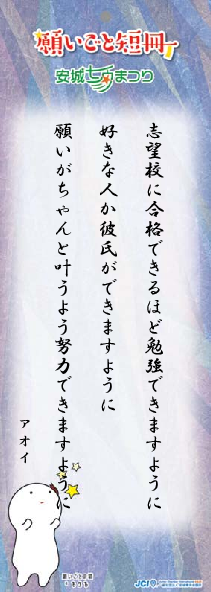 願いごと短冊
安城七夕まつり
志望校に合格できるほど勉強できますように
好きな人か彼氏ができますように
願いがちゃんと叶うよう努力できますように
アオイ
JCI